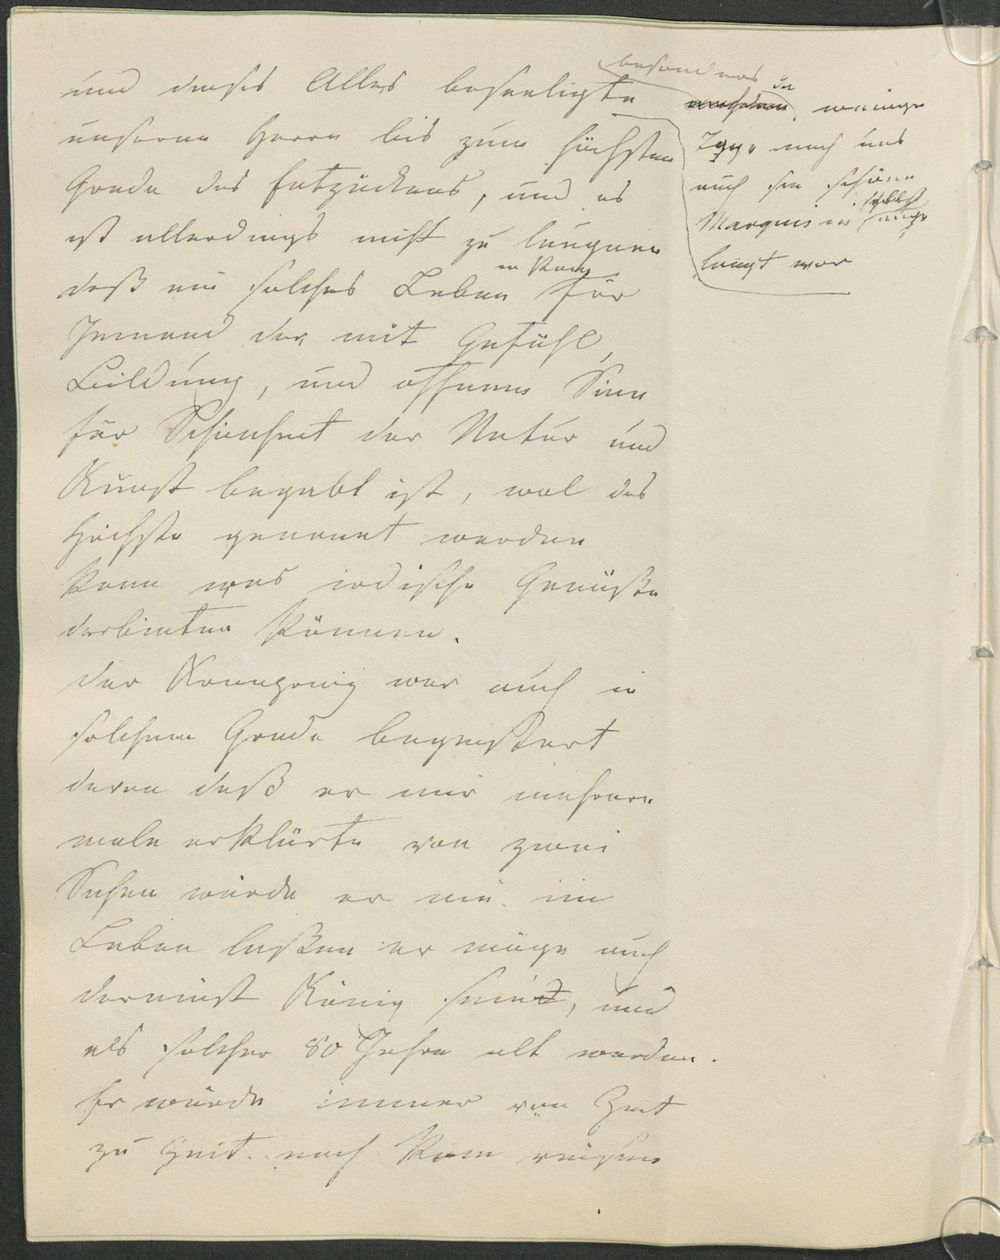 und dieses Alles beseeligte
unseren Herrn bis zum höchsten
Grade des Entzückens, und es
ist allerdings nicht zu läugnen
daß ein solches Leben in Rom für
Jemand der mit Gefühl,
Bildung, und offenem Sinn
für Schönheit der Natur und
Kunst begabt ist, wol das
Höchste genannt werden
kann was irdische Genüße
darbieten können.
Der Kronprinz war auch in
solchem Grade begeistert
davon daß er mir mehrere
male erklärte von zwei
Sachen würde er nie im
Leben laßen er möge auch
dereinst König sein, und
als solcher 80 Jahre alt werden.
Er würde immer von Zeit
zu Zeit nach Rom reisen
besonders
da wenige
Tage nach uns
auch die schöne
Marquisin selbst
langt war